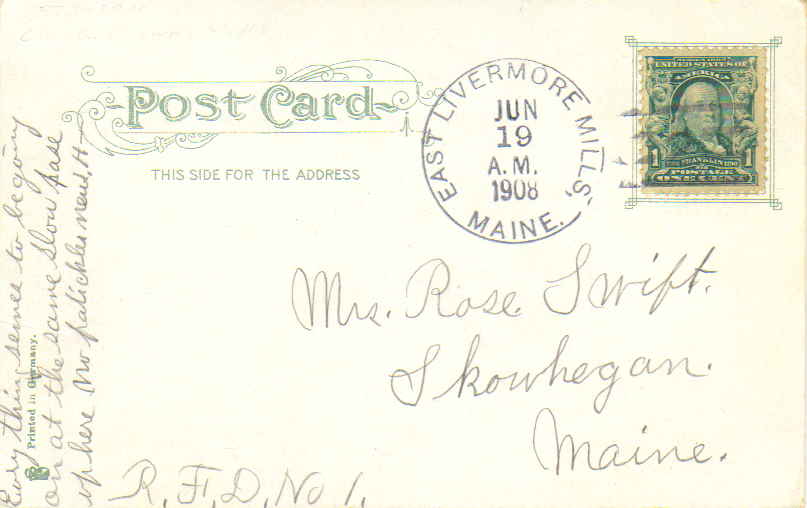 Post Card
THIS SIDE FOR THE ADDRESS
EAST LIVERMORE MILLS,
MAINE.
JUN
19
A.M.
1908
SERIES 1902
UNITED STATES OF
AMERICA
1
FRANKLIN
POSTAGE
ONE CENT
Mrs. Rose Swift.
Skowhegan.
Maine.
R. F. D. No 1.
Every thing semes to be going
on at the same slow pase
up here No patickler news. H—
Printed in Germany.